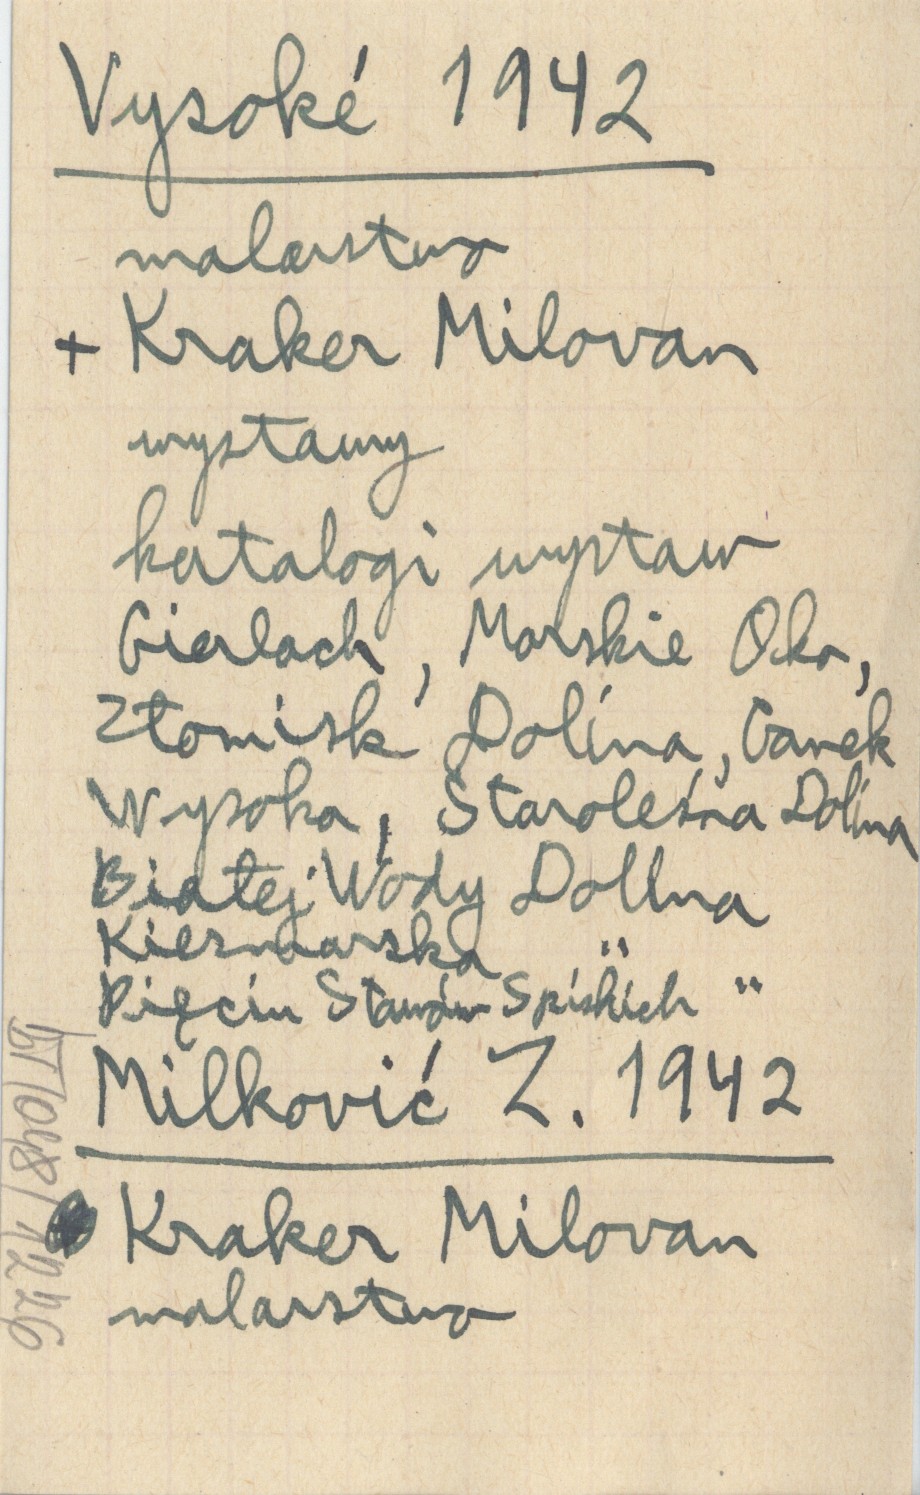 Vysoké 1942
malarstwo
+ Kraker Milovan
wystawy
katalogi wystaw
Gierlach, Morskie Oko,
Złomisk Dolina, Ganek
Wysoka, Staroleśna Dolina
Białej Wody Dolina
Kieżmarska "
Pięciu Stawów Spiskich "
Milković Z. 1942
Kraker Milovan
malarstwo
BT/048/1226